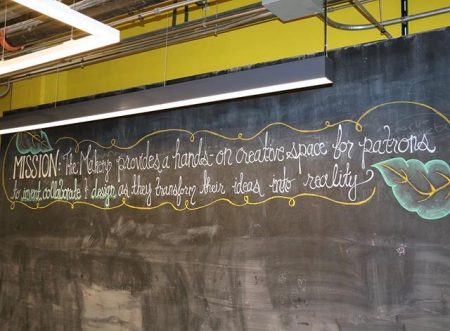 MISSION: The Makery provides a hands-on creative space for patrons
to invent, collaborate & design as they transform their ideas into reality.